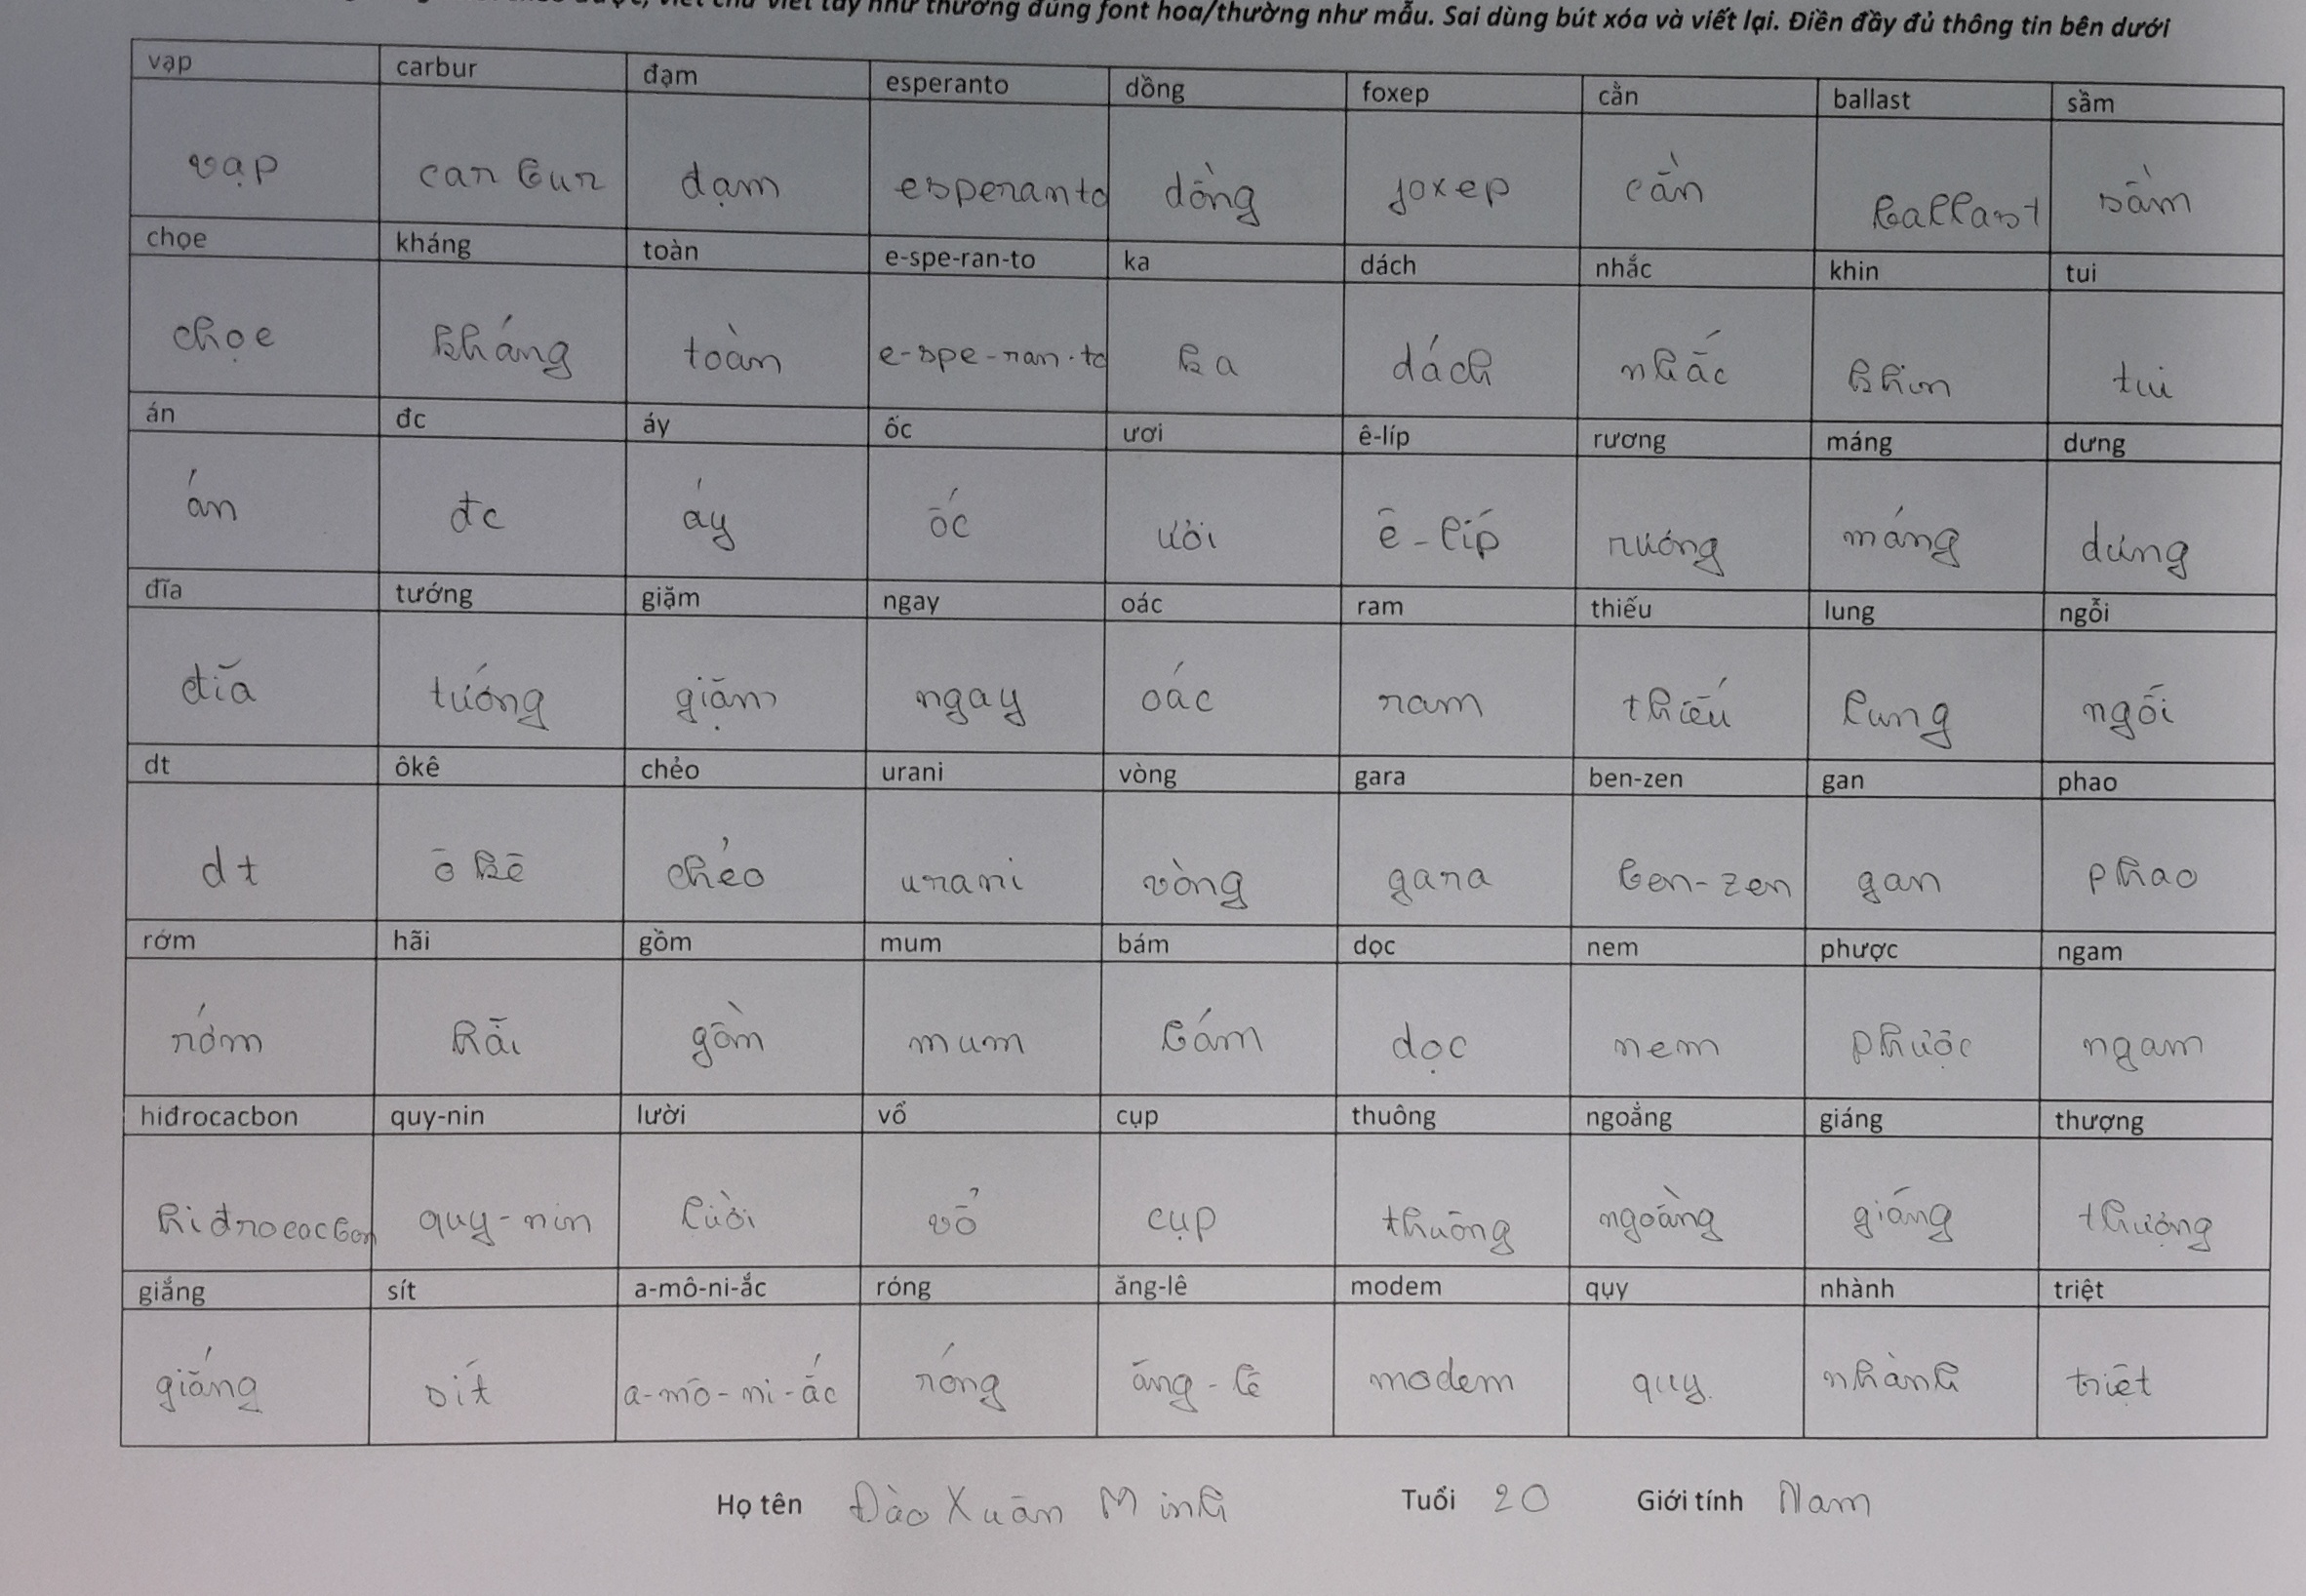 viết chữ viết tay như thường đúng font hoa/thường như mẫu. Sai dùng bút xóa và viết lại. Điền đầy đủ thông tin bên dưới
vạp carbur đạm esperanto dồng foxep cằn ballast sầm
vạp carbur đạm esperanto dồng foxep cằn ballast sầm
chọe kháng toàn e-spe-ran-to ka dách nhắc khin tui
chọe kháng toàn e-spe-ran-to ka dách nhắc khin tui
án đc áy ốc ươi ê-líp rương máng dưng
án đc áy ốc ươi ê-líp rương máng dưng
đĩa tướng giặm ngay oác ram thiếu lung ngỗi
đĩa tướng giặm ngay oác ram thiếu lung ngỗi
dt ôkê chẻo urani vòng gara ben-zen gan phao
dt ôkê chẻo urani vòng gara ben-zen gan phao
rớm hãi gồm mum bám dọc nem phược ngam
rớm hãi gồm mum bám dọc nem phược ngam
hiđrocacbon quy-nin lười vổ cụp thuông ngoẳng giáng thượng
hiđrocacbon quy-nin lười vổ cụp thuông ngoẳng giáng thượng
giắng sít a-mô-ni-ắc róng ăng-lê modem quỵ nhành triệt
giắng sít a-mô-ni-ắc róng ăng-lê modem quỵ nhành triệt
Họ tên Đào Xuân Minh Tuổi 20 Giới tính Nam